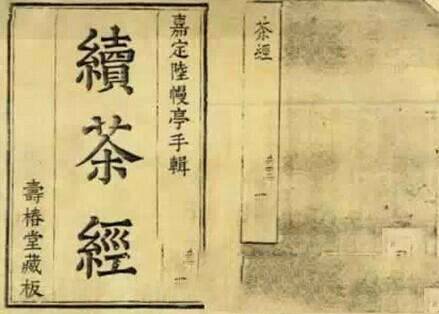 茶經
嘉定陸幔亭手輯
續茶經
壽椿堂藏板